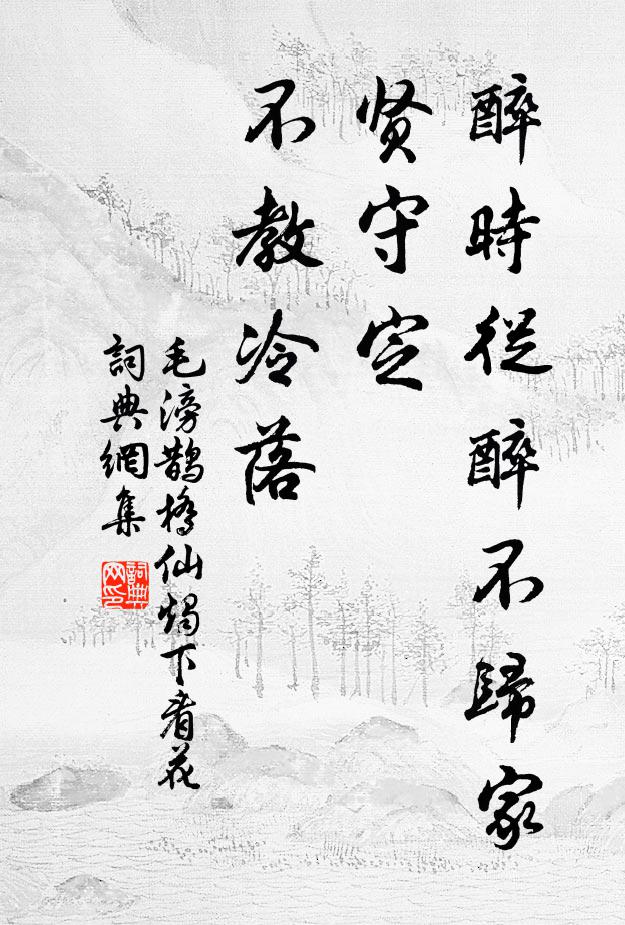 醉時從醉不歸家
贤守定
不教冷落
毛滂鹊橋仙燭下看花
詞典網集
詞典网印